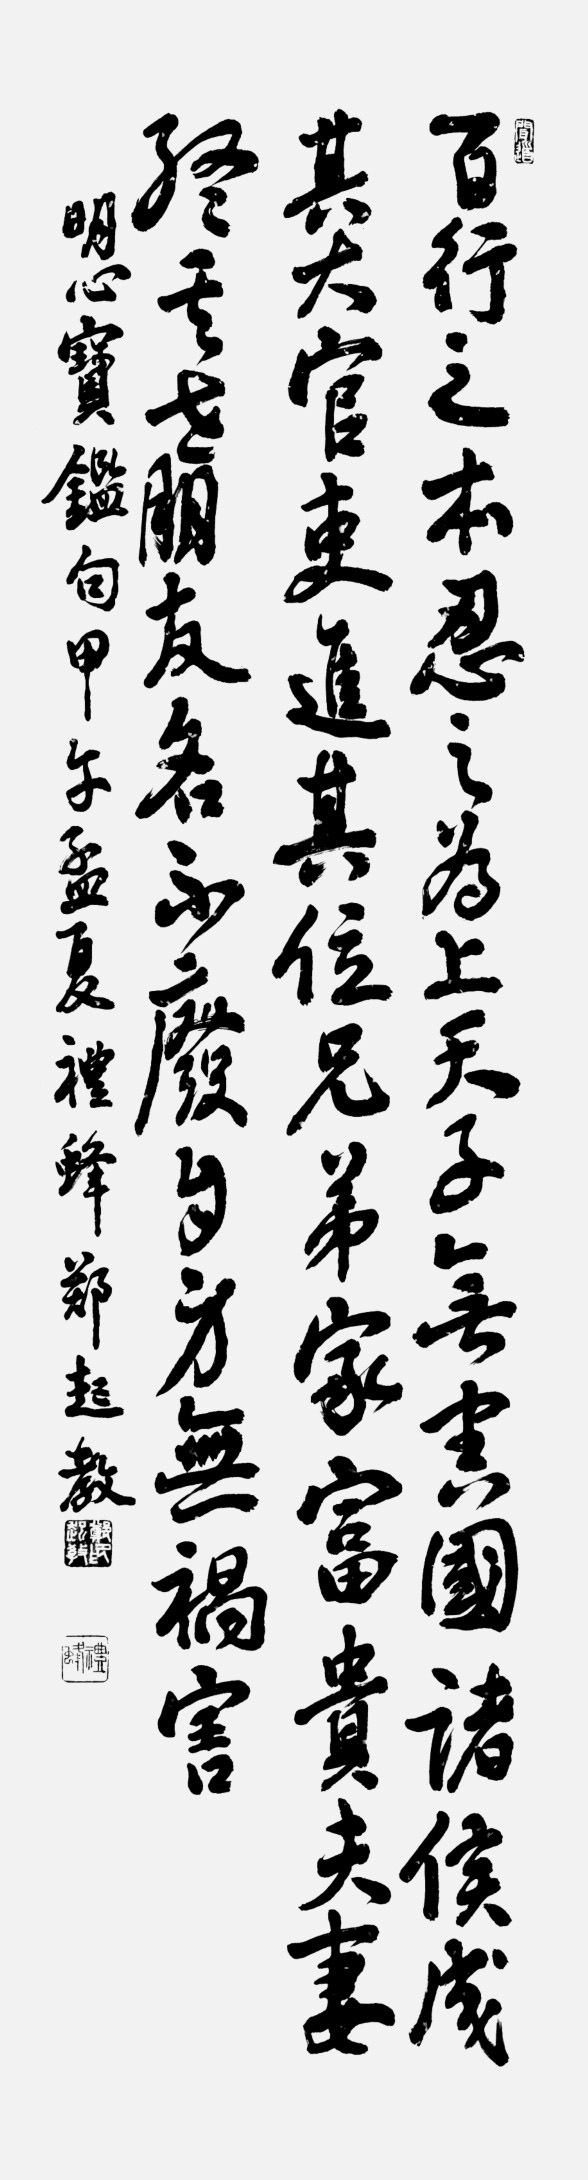 百行之本忍之為上天子無害國諸侯成
其大官吏進其位兄弟家富貴夫妻
終其世朋友名不廢自身無禍害
明心寶鑑句甲午孟夏禮蜂鄭起教
禮蜂